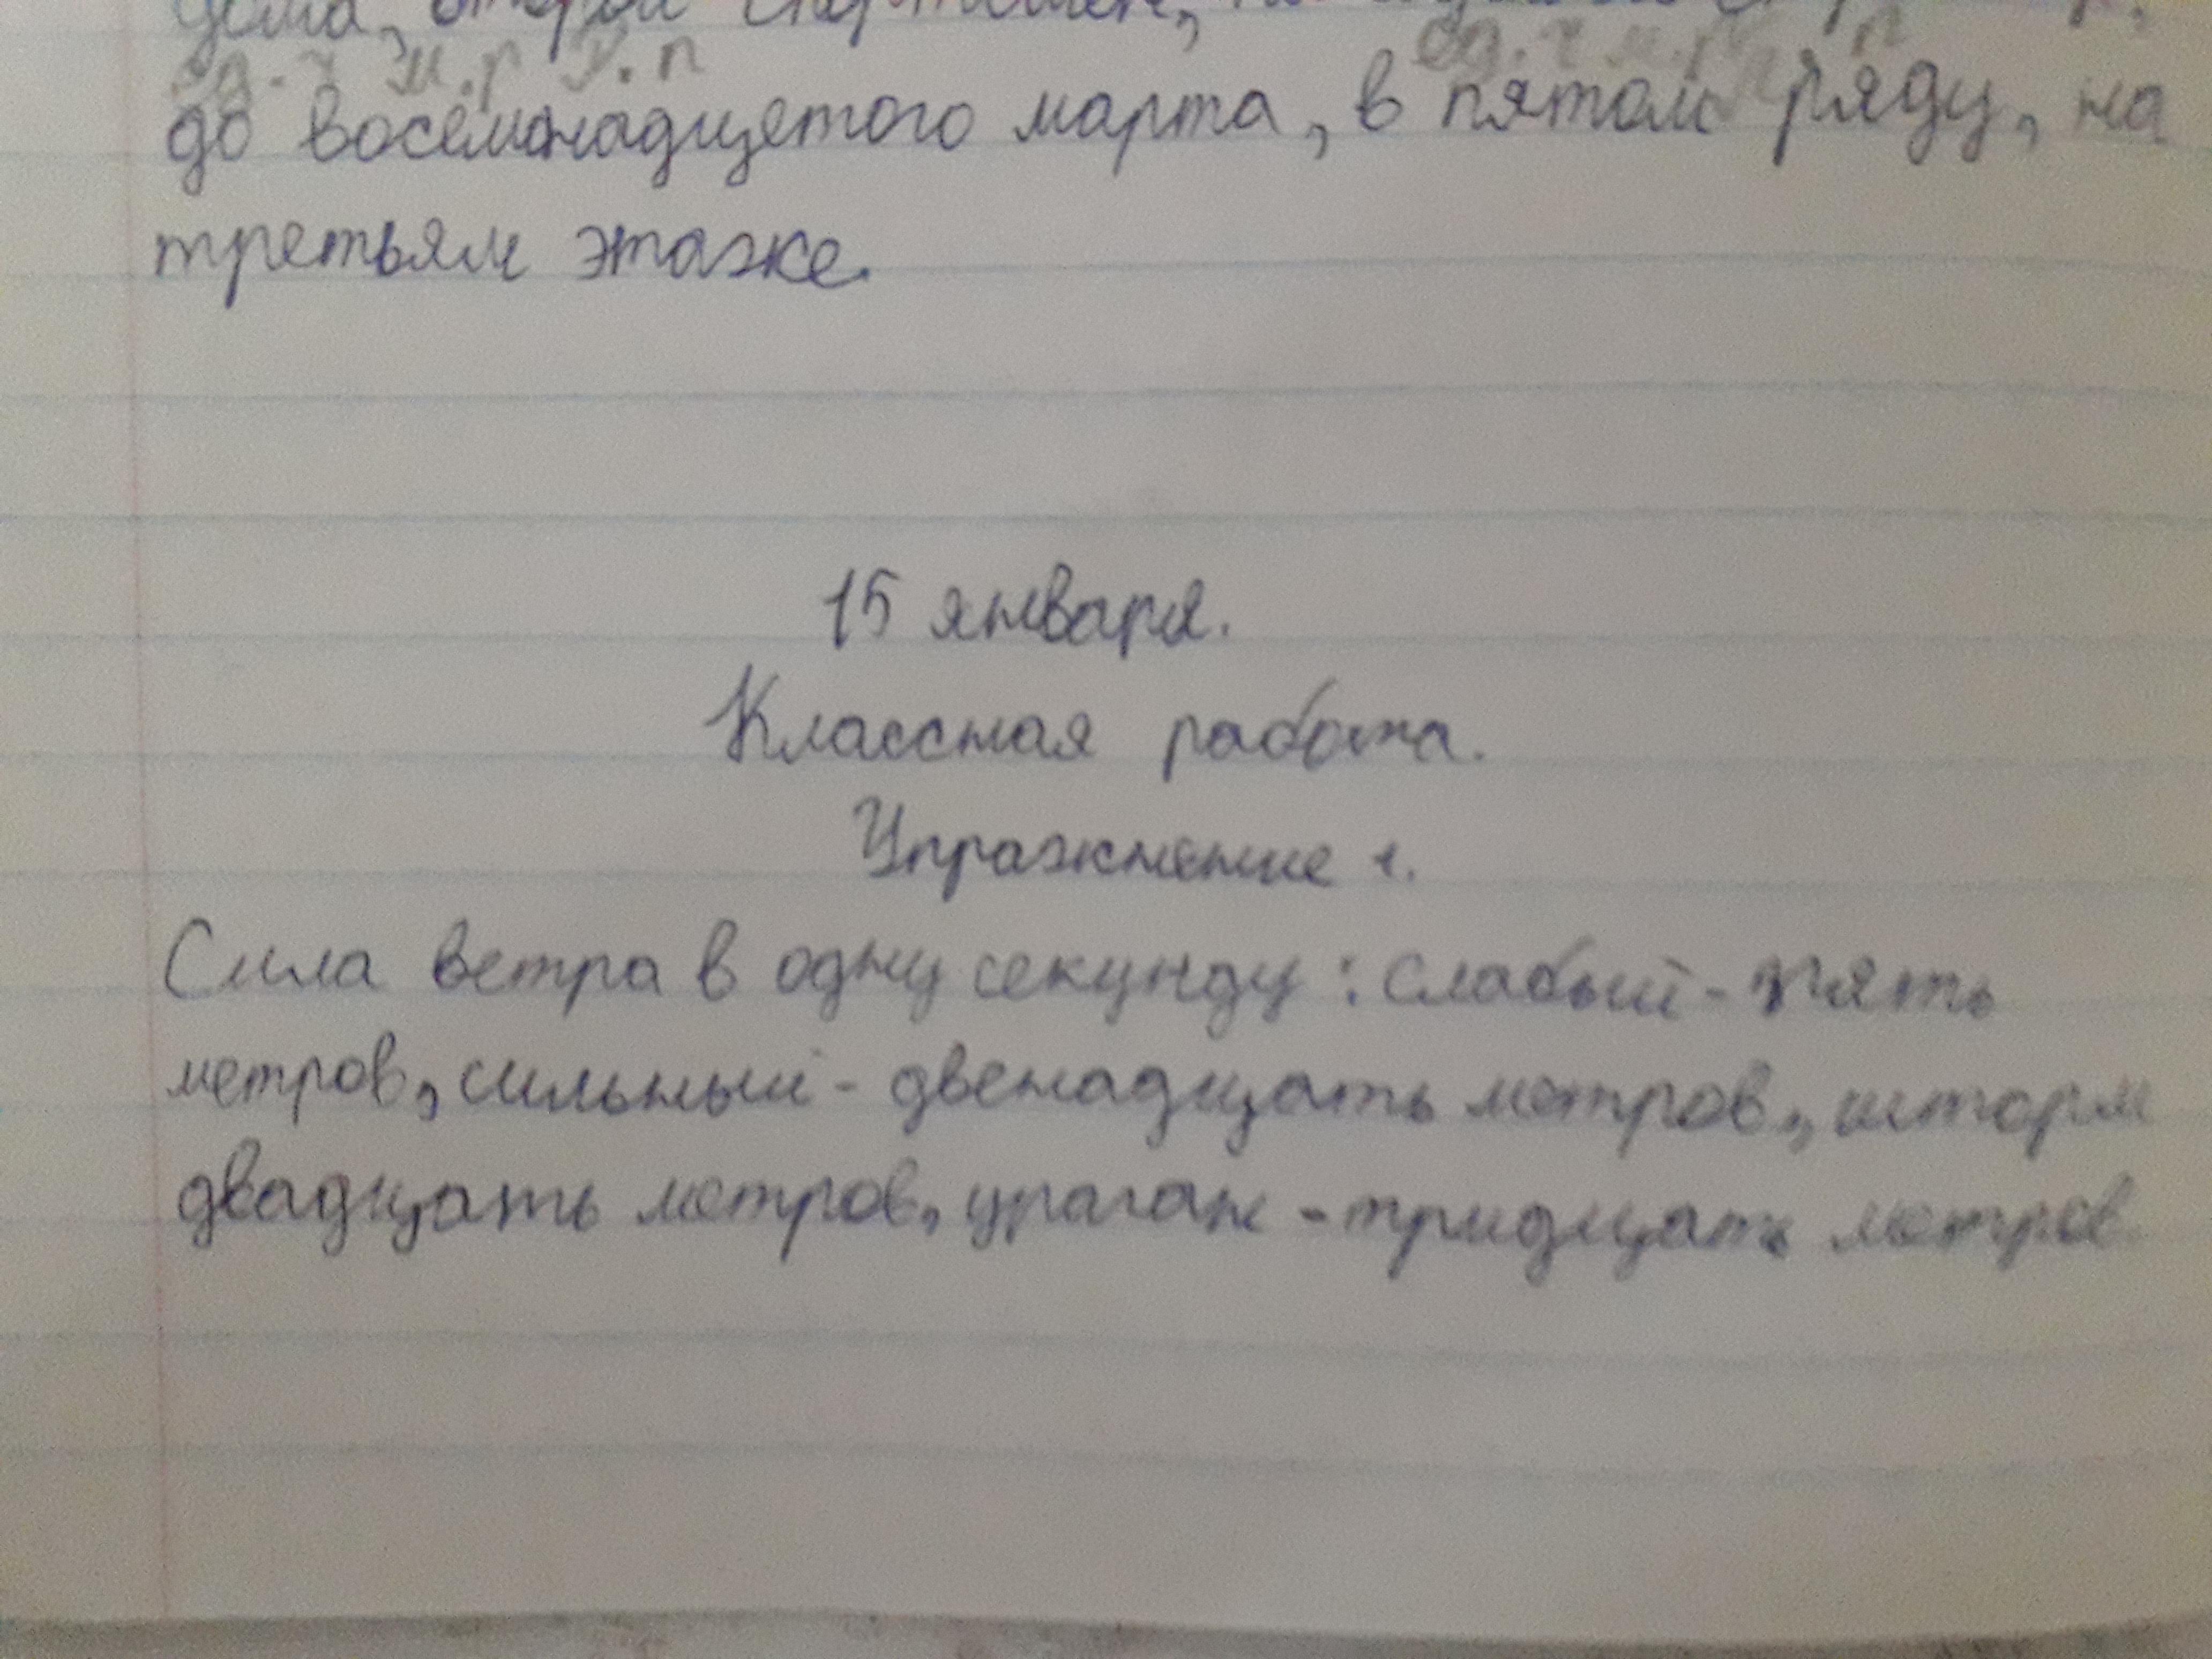 дома, второй спортсмен,
ед. ч м.р Р.п ед. ч м.р п п
до восемонадцетого марта, в пятом ряду, на
третьям этаже.
15 января.
Классная работа.
Упражнение 1.
Сила ветра в одну секунду: слабый - пять
метров, сильный - двенадцать метров, шторм
двадцать метров, ураган - тридцать метров